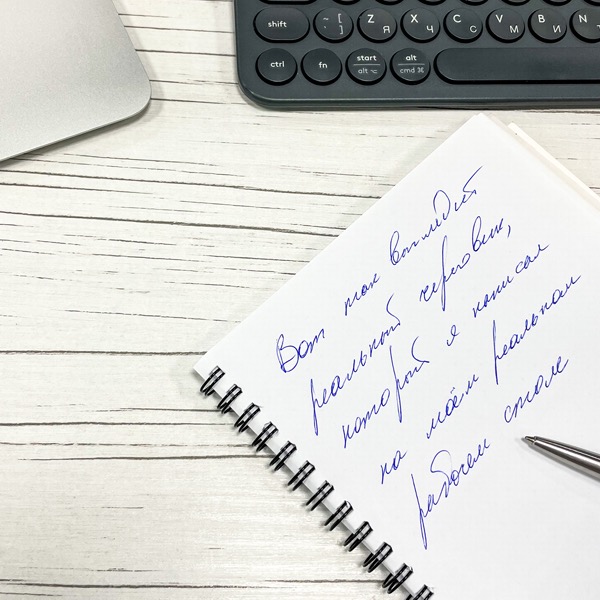 shift ~ [ ` ] Z Я X Ч C С V М B И N
ctrl fn start alt ⌥ alt cmd ⌘
Вот так выглядит
реальный черновик,
который я написал
на моём реальном
рабочем столе